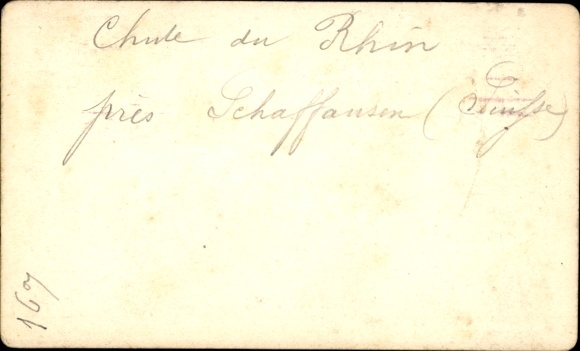 Chute du Rhin
près Schaffausen (Suisse)
167